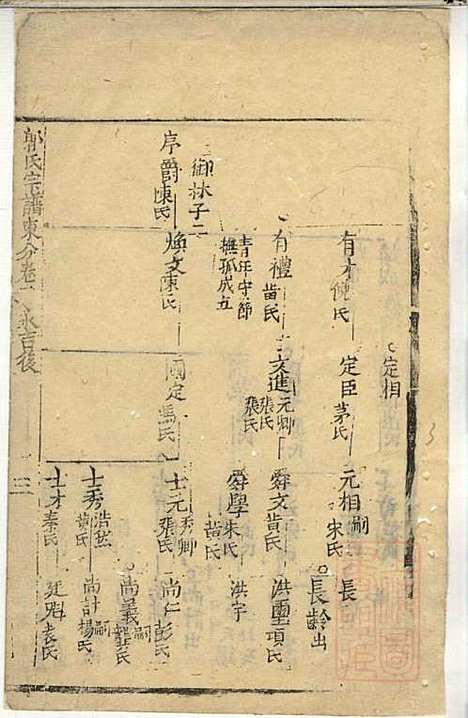 定相
有才倪氏
定臣茅氏
元相嗣宋氏
長
長齡出
有禮苗氏
青年守節
撫孤成立
文進元卿張氏張氏
舜文黄氏
洪璽項氏
舜學朱氏黄氏
洪宇
御林子二
序爵陳氏
煥文陳氏
國定馬氏
士元秀卿張氏
尚仁彭氏
尚義嗣龔氏
士秀浩然黄氏
尚計嗣楊氏
士才秦氏
廷魁袁氏
郭氏宗譜東分卷
永言後